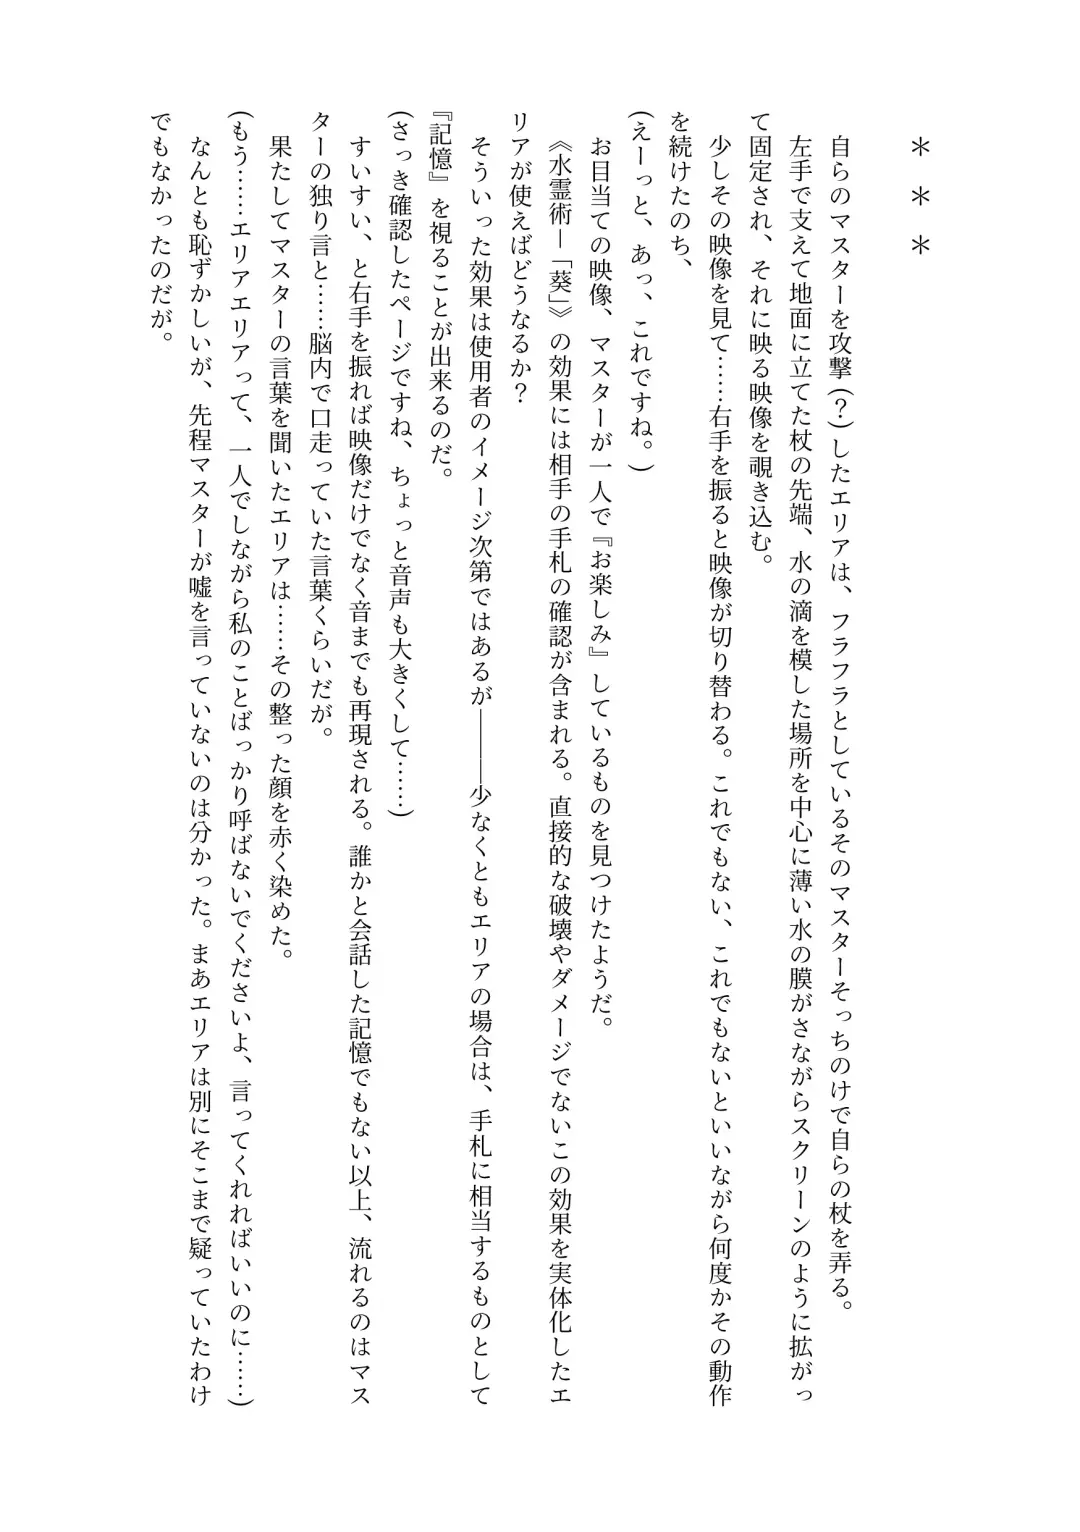 ＊　＊　＊
　自らのマスターを攻撃(？)したエリアは、フラフラとしているそのマスターそっちのけで自らの杖を弄る。
　左手で支えて地面に立てた杖の先端、水の滴を模した場所を中心に薄い水の膜がさながらスクリーンのように拡がっ
て固定され、それに映る映像を覗き込む。
　少しその映像を見て……右手を振ると映像が切り替わる。これでもない、これでもないといいながら何度かその動作
を続けたのち、
(えーっと、あっ、これですね。)
　お目当ての映像、マスターが一人で『お楽しみ』しているものを見つけたようだ。
　《水霊術―「葵」》の効果には相手の手札の確認が含まれる。直接的な破壊やダメージでないこの効果を実体化したエ
リアが使えばどうなるか？
　そういった効果は使用者のイメージ次第ではあるが―――少なくともエリアの場合は、手札に相当するものとして
『記憶』を視ることが出来るのだ。
(さっき確認したページですね、ちょっと音声も大きくして……)
　すいすい、と右手を振れば映像だけでなく音までも再現される。誰かと会話した記憶でもない以上、流れるのはマス
ターの独り言と……脳内で口走っていた言葉くらいだが。
　果たしてマスターの言葉を聞いたエリアは……その整った顔を赤く染めた。
(もう……エリアエリアって、一人でしながら私のことばっかり呼ばないでくださいよ、言ってくれればいいのに……)
　なんとも恥ずかしいが、先程マスターが嘘を言っていないのは分かった。まあエリアは別にそこまで疑っていたわけ
でもなかったのだが。